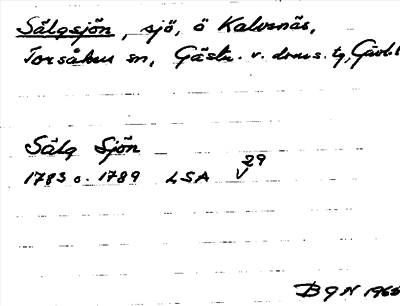 Sälgsjön, sjö, ö Kalvsnäs,
Torsåkers sn, Gästr. v. doms. tg, Gävl. l
Sälg Sjön
1783 o. 1789 LSA V 29
B g N 1965